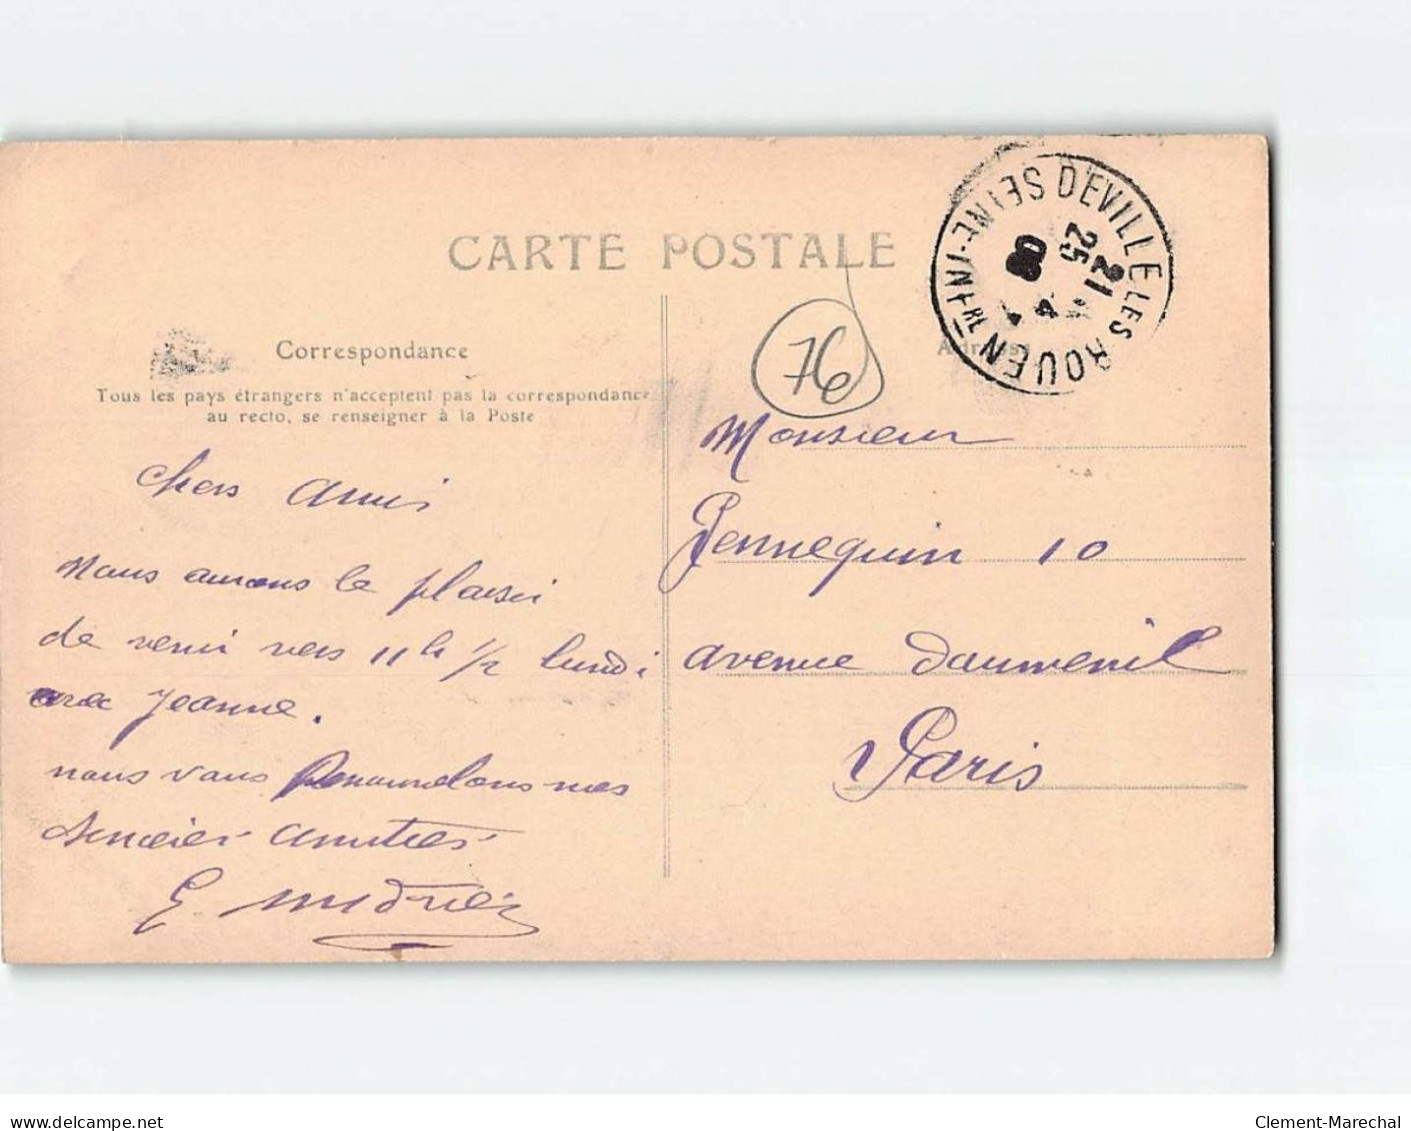 CARTE POSTALE
DEVILLE LES ROUEN
SEINE-INFRE
21
25
Correspondance
Adresse
76
Tous les pays étrangers n'acceptent pas la correspondance
au recto, se renseigner à la Poste
Monsieur
Chers Amis
Jennequin 10
Nous aurons le plaisir
de venir vers 11h 1/2 lundi
avenue Daumenil
avec Jeanne.
Paris
nous vous nos
sincères amitiés
E
www.delcampe.net
Clement-Marechal